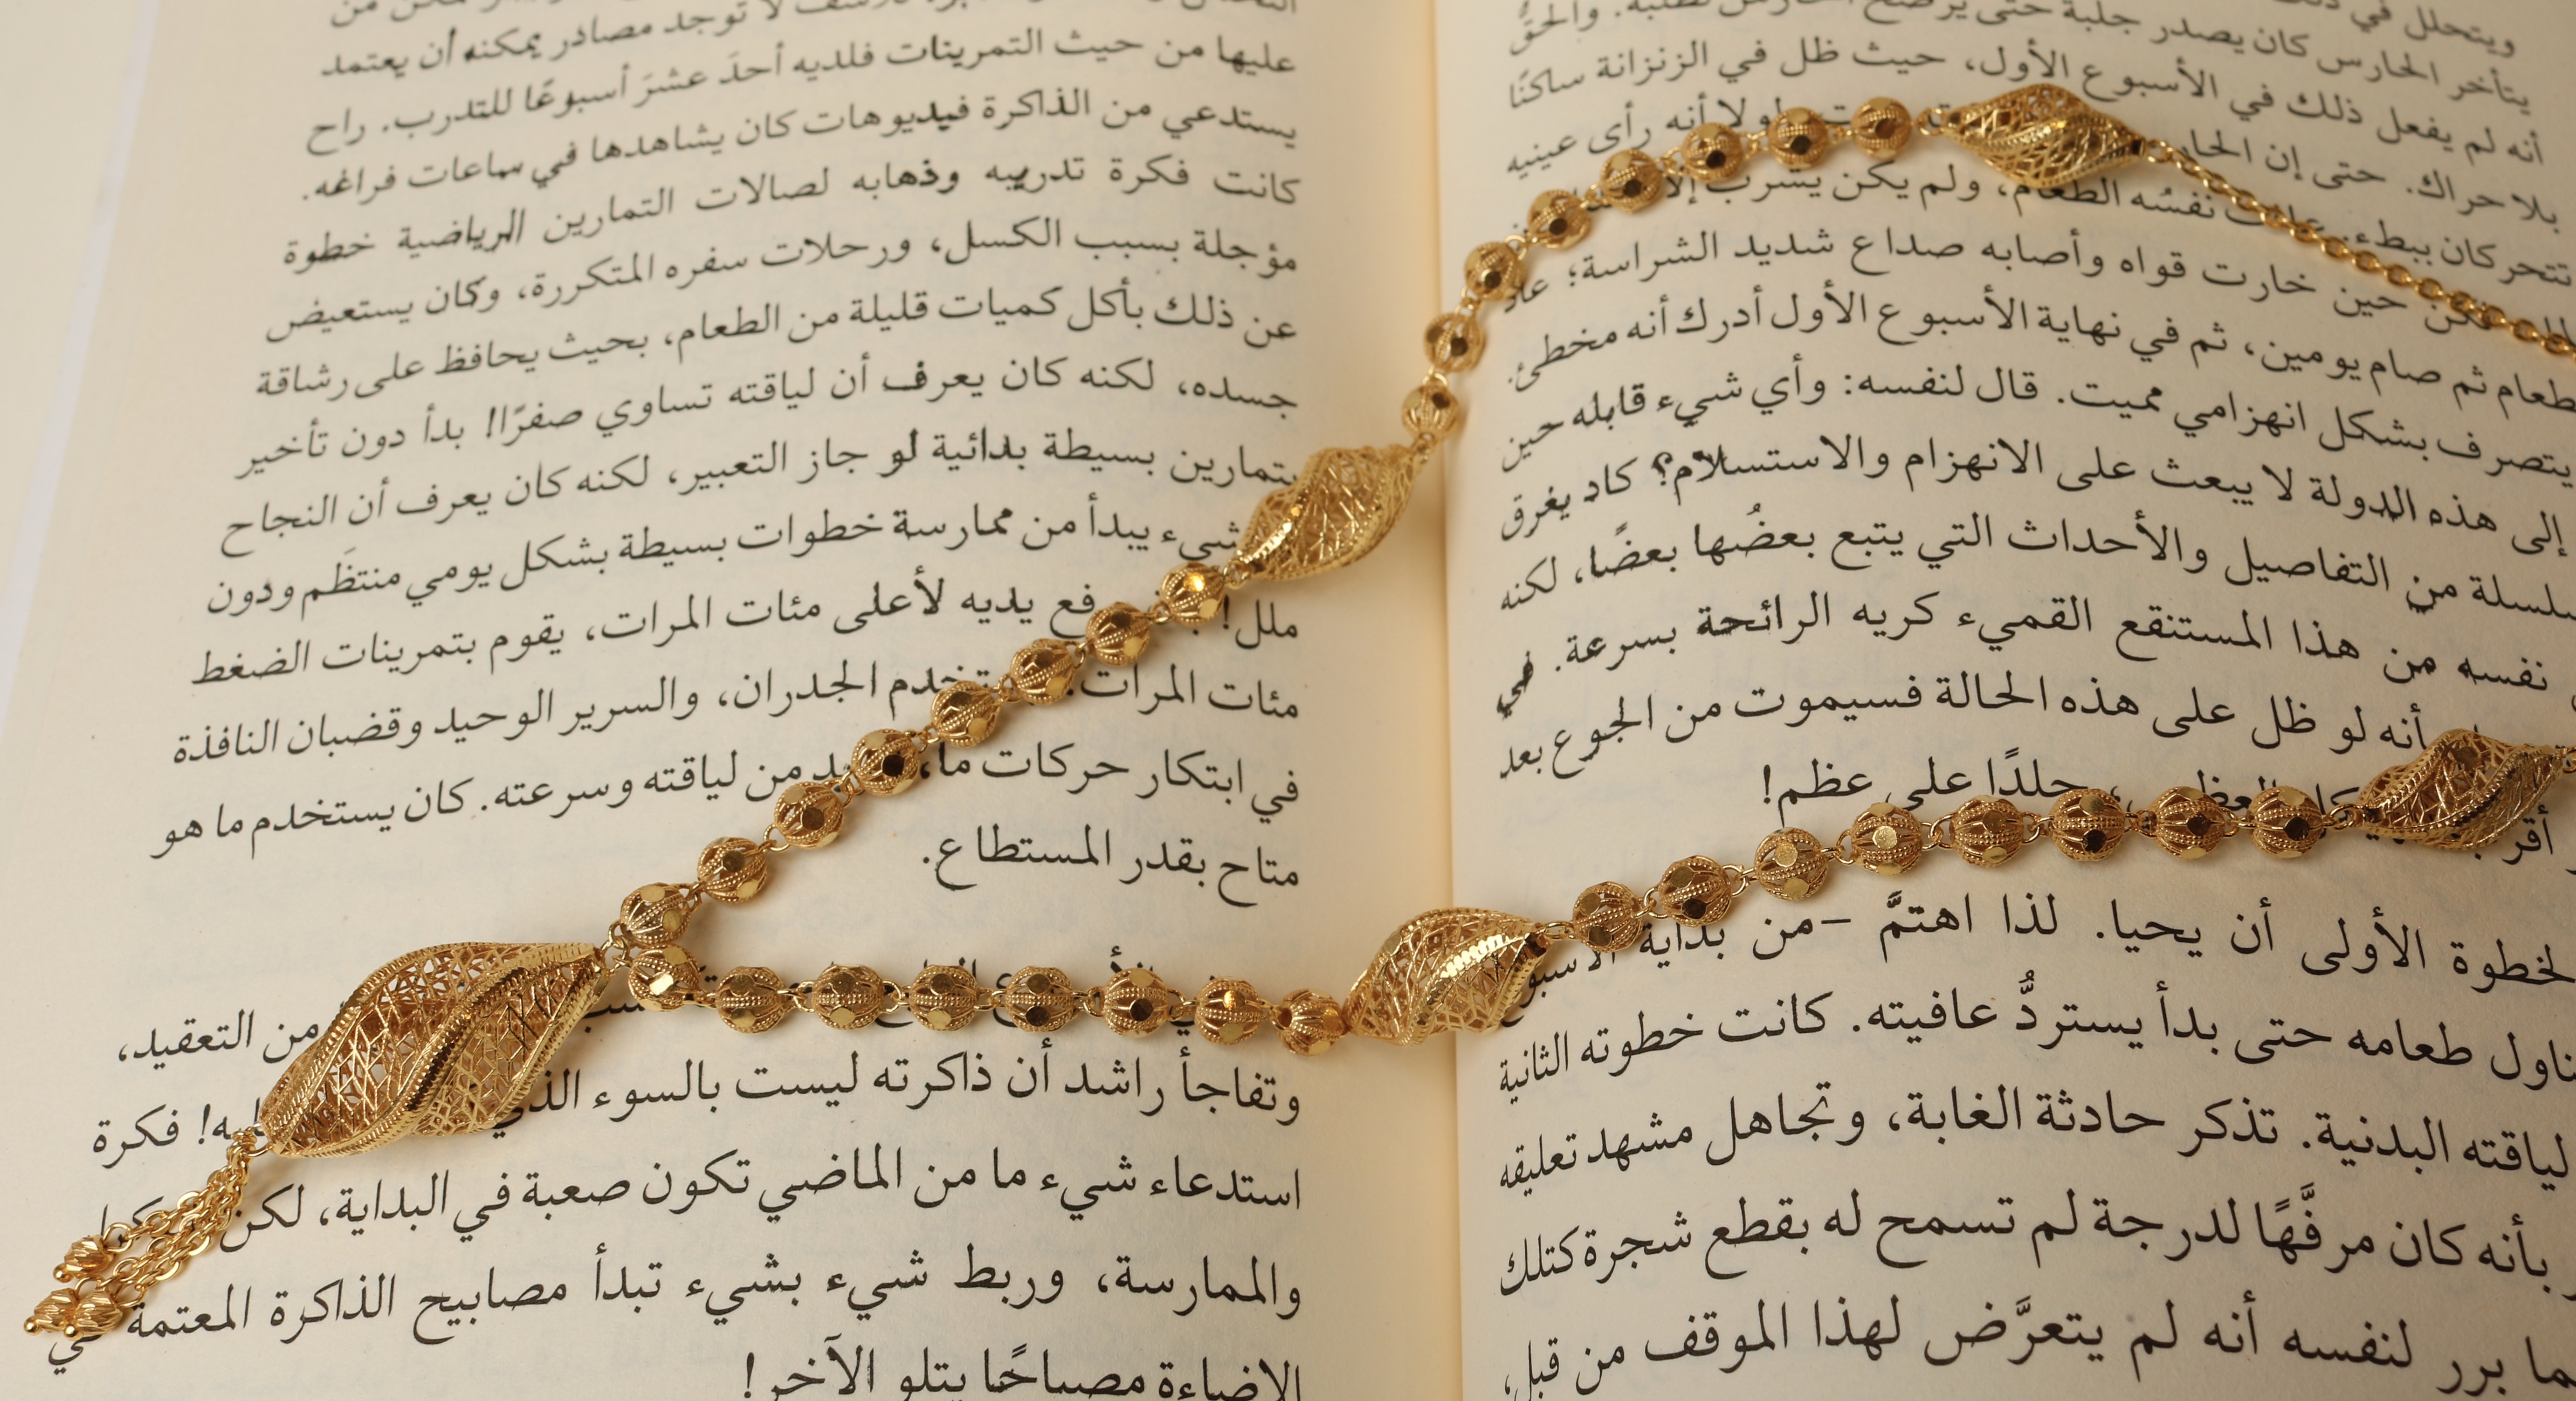 ويتحلل في
يتأخر الحارس كان يصدر جلبة حتى والحق
أنه لم يفعل ذلك في الأسبوع الأول، حيث ظل في الزنزانة ساكنًا
بلا حراك. حتى إن لولا أنه رأى عينيه
تتحركان ببطء. نفسُه الطعام، ولم يكن يشرب
حين خارت قواه وأصابه صداع شديد الشراسة؛
طعام ثم صام يومين، ثم في نهاية الأسبوع الأول أدرك أنه مخطئ.
يتصرف بشكل انهزامي مميت. قال لنفسه: وأي شيء قابله حين
إلى هذه الدولة لا يبعث على الانهزام والاستسلام؟ كاد يغرق
سلسلة من التفاصيل والأحداث التي يتبع بعضُها بعضًا، لكنه
نفسه من هذا المستنقع القميء كريه الرائحة بسرعة. في
أنه لو ظل على هذه الحالة فسيموت من الجوع بعد
جلدًا على عظم!
الخطوة الأولى أن يحيا. لذا اهتمَّ –من بداية
طعامه حتى بدأ يستردُّ عافيته. كانت خطوته الثانية
لياقته البدنية. تذكر حادثة الغابة، وتجاهل مشهد تعليقه
بأنه كان مرفَّهًا لدرجة لم تسمح له بقطع شجرة كتلك
برر لنفسه أنه لم يتعرَّض لهذا الموقف من قبل،
لا توجد مصادر يمكنه أن يعتمد
عليها من حيث التمرينات فلديه أحدَ عشرَ أسبوعًا للتدرب. راح
يستدعي من الذاكرة فيديوهات كان يشاهدها في ساعات فراغه.
كانت فكرة تدريبه وذهابه لصالات التمارين الرياضية خطوة
مؤجلة بسبب الكسل، ورحلات سفره المتكررة، وكان يستعيض
عن ذلك بأكل كميات قليلة من الطعام، بحيث يحافظ على رشاقة
جسده، لكنه كان يعرف أن لياقته تساوي صفرًا! بدأ دون تأخير
بتمارين بسيطة بدائية لو جاز التعبير، لكنه كان يعرف أن النجاح
شيء يبدأ من ممارسة خطوات بسيطة بشكل يومي منتظَم ودون
ملل! يديه لأعلى مئات المرات، يقوم بتمرينات الضغط
مئات المرات. الجدران، والسرير الوحيد وقضبان النافذة
في ابتكار حركات ما، من لياقته وسرعته. كان يستخدم ما هو
متاح بقدر المستطاع.
من التعقيد،
وتفاجأ راشد أن ذاكرته ليست بالسوء الذي فكرة
استدعاء شيء ما من الماضي تكون صعبة في البداية، لكن
والممارسة، وربط شيء بشيء تبدأ مصابيح الذاكرة المعتمة في
الإضاءة مصباحًا يتلو الآخر!